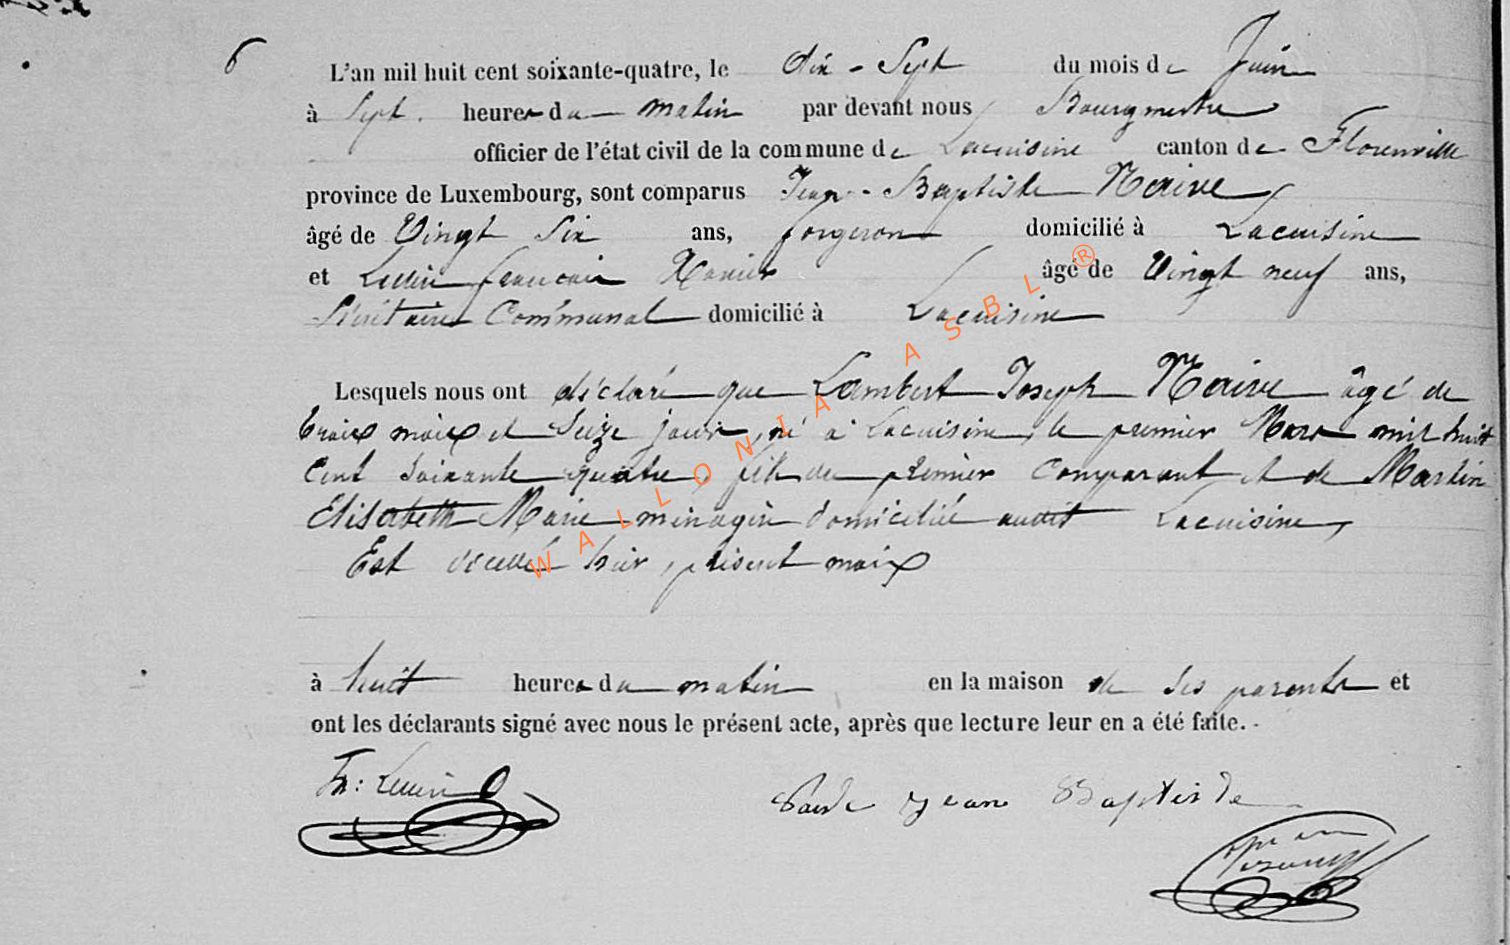 6
L'an mil huit cent soixante-quatre, le dix-Sept du mois de Juin
à Sept. heures du matin par devant nous Bourgmestre
officier de l'état civil de la commune de Lacuisine canton de Florenville
province de Luxembourg, sont comparus Jean-Baptiste
âgé de Vingt Six ans, forgeron domicilié à Lacuisine
et François Xavier âgé de Vingt neuf ans,
Secrétaire Communal domicilié à Lacuisine
Lesquels nous ont déclaré que Lambert Joseph âgé de
trois mois et Seize jours, né à Lacuisine, le premier Mars mil huit
cent soixante quatre, fils du premier comparant et de Martin
Elisabeth Marie ménagère domiciliée audit Lacuisine,
Est décédé hier, présent mois
à huit heures du matin en la maison de ses parents et
ont les déclarants signé avec nous le présent acte, après que lecture leur en a été faite.
Jean Baptiste
WALLONIA ASBL ®